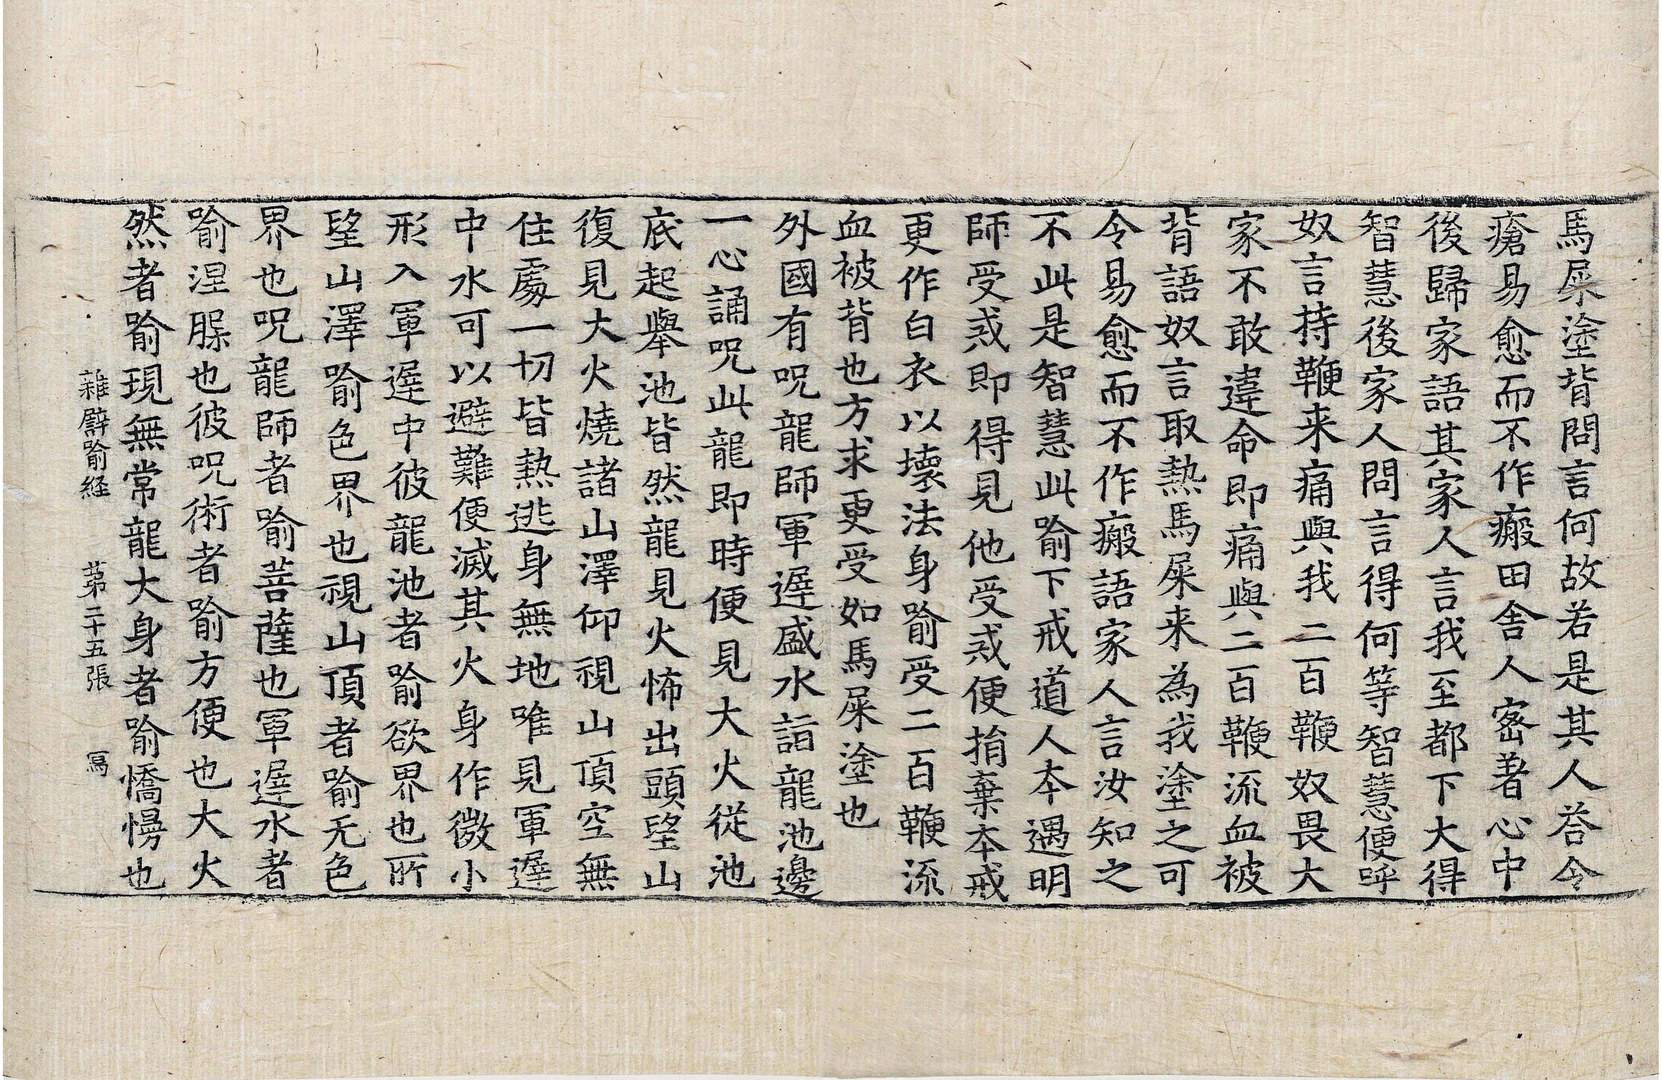 馬屎塗背問言何故若是其人荅令
瘡易愈而不作瘢田舍人密著心中
後歸家語其家人言我至都下大得
智慧後家人問言得何等智慧便呼
奴言持鞭来痛與我二百鞭奴畏大
家不敢違命即痛與二百鞭流血被
背語奴言取熱馬屎来為我塗之可
令易愈而不作瘢語家人言汝知之
不此是智慧此喻下戒道人本遇明
師受戒即得見他受戒便捐棄本戒
更作白衣以壞法身喻受二百鞭流
血被背也方求更受如馬屎塗也
外國有呪龍師軍遟盛水詣龍池邊
一心誦呪此龍即時便見大火從池
底起舉池皆然龍見火怖出頭望山
復見大火燒諸山澤仰視山頂空無
住處一切皆熱逃身無地唯見軍遟
中水可以避難便滅其火身作微小
形入軍遟中彼龍池者喻欲界也所
望山澤喻色界也視山頂者喻无色
界也呪龍師者喻菩薩也軍遟水者
喻涅槃也彼呪術者喻方便也大火
然者喻現無常龍大身者喻憍慢也
雜譬喻経　第二十五張　寫